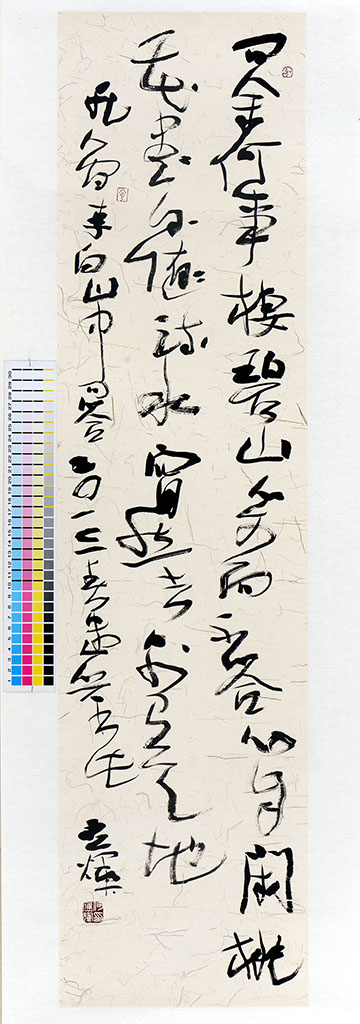 問余何事棲碧山笑而不答心自閑桃
花盡日隨流水窅然去別有天地
非人間李白山中問答二〇一三春